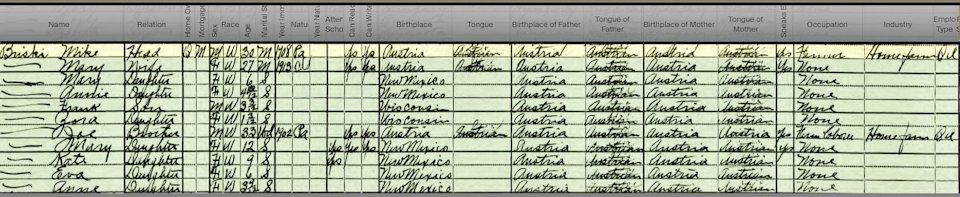 Name Relation Home Ow Mortgag Sex Race Age Marital St Year Imm Natu Year Natu Atten Scho Can Read Can Write Birthplace Tongue Birthplace of Father Tongue of Father Birthplace of Mother Tongue of Mother Speaks E Occupation Industry Emplo Type S
Briski Mike Head O M M W 30 M 1908 Pa Yes Yes Austria Austrian Austria Austrian Austria Austrian Yes Farmer Home farm
— Mary Wife F W 27 M 1913 Yes Yes Austria Austrian Austria Austrian Austria Austrian Yes None
— Mary Daughter F W 6 S New Mexico Austria Austrian Austria Austrian None
— Annie Daughter F W S New Mexico Austria Austrian Austria Austrian None
— Frank Son M W S Wisconsin Austria Austrian Austria Austrian None
— Zora Daughter F W S Wisconsin Austria Austrian Austria Austrian None
— Joe Brother M W 33 Wd 1902 Pa Yes Yes Austria Austrian Austria Austrian Austria Austrian Yes Farm Laborer Home farm
— Mary Daughter F W 12 S Yes Yes Yes New Mexico Austria Austrian Austria Austrian Yes None
— Kate Daughter F W 9 S Yes New Mexico Austria Austrian Austria Austrian None
— Eva Daughter F W 6 S New Mexico Austria Austrian Austria Austrian None
— Annie Daughter F W S New Mexico Austria Austrian Austria Austrian None